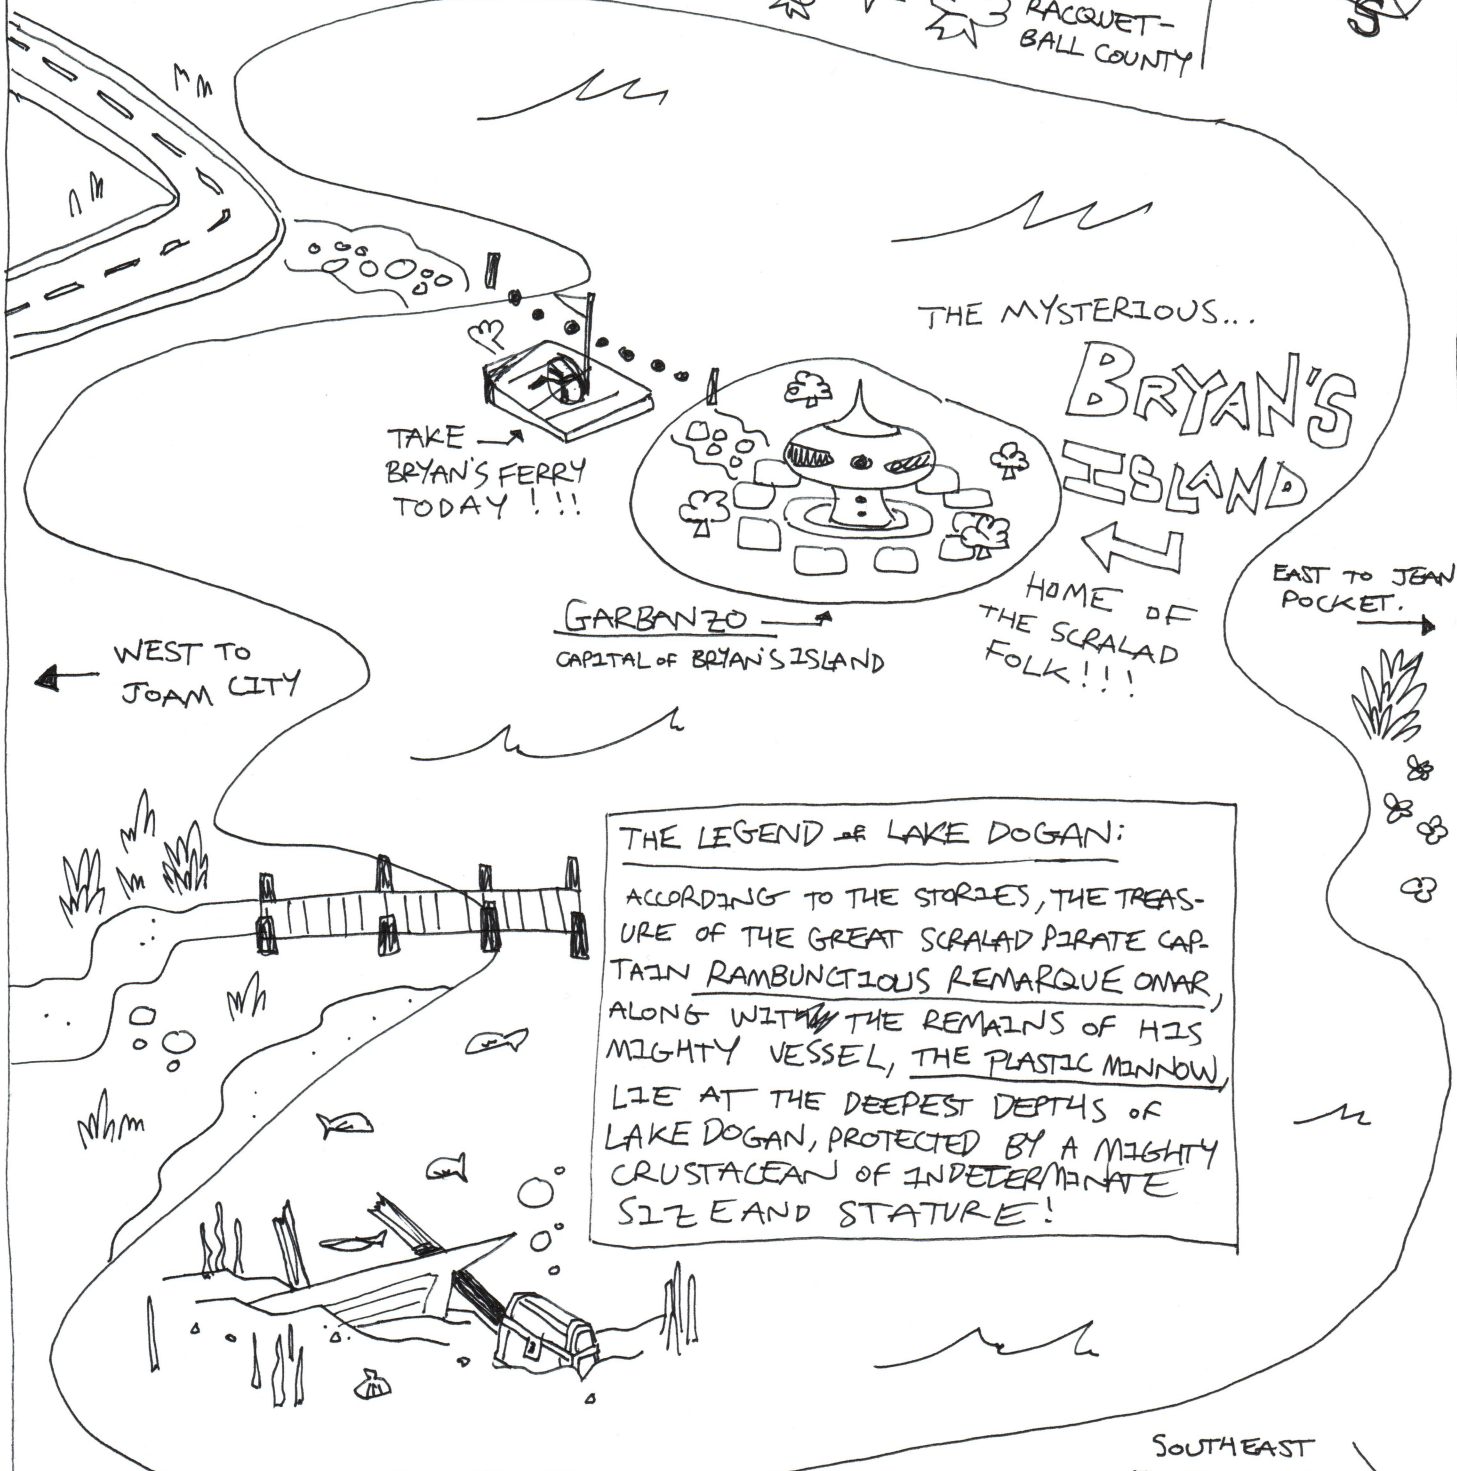 RACQUET-
BALL COUNTY
S
THE MYSTERIOUS...
BRYAN'S
ISLAND
HOME OF
THE SCRALAD
FOLK!!!
TAKE
BRYAN'S FERRY
TODAY!!!
GARBANZO
CAPITAL OF BRYAN'S ISLAND
EAST TO JEAN
POCKET.
WEST TO
JOAM CITY
THE LEGEND OF LAKE DOGAN:
ACCORDING TO THE STORIES, THE TREAS-
URE OF THE GREAT SCRALAD PIRATE CAP-
TAIN RAMBUNCTIOUS REMARQUE OMAR,
ALONG WITH THE REMAINS OF HIS
MIGHTY VESSEL, THE PLASTIC MINNOW,
LIE AT THE DEEPEST DEPTHS OF
LAKE DOGAN, PROTECTED BY A MIGHTY
CRUSTACEAN OF INDETERMINATE
SIZE AND STATURE!
SOUTHEAST